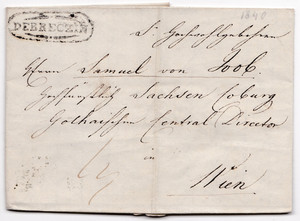 1848
DEBRECZIN
Sr Hochwohlgebohren
Herrn Samuel von Joob
Hochfürstlich Sachsen Coburg
Gothaischen Central Director
in
Wien